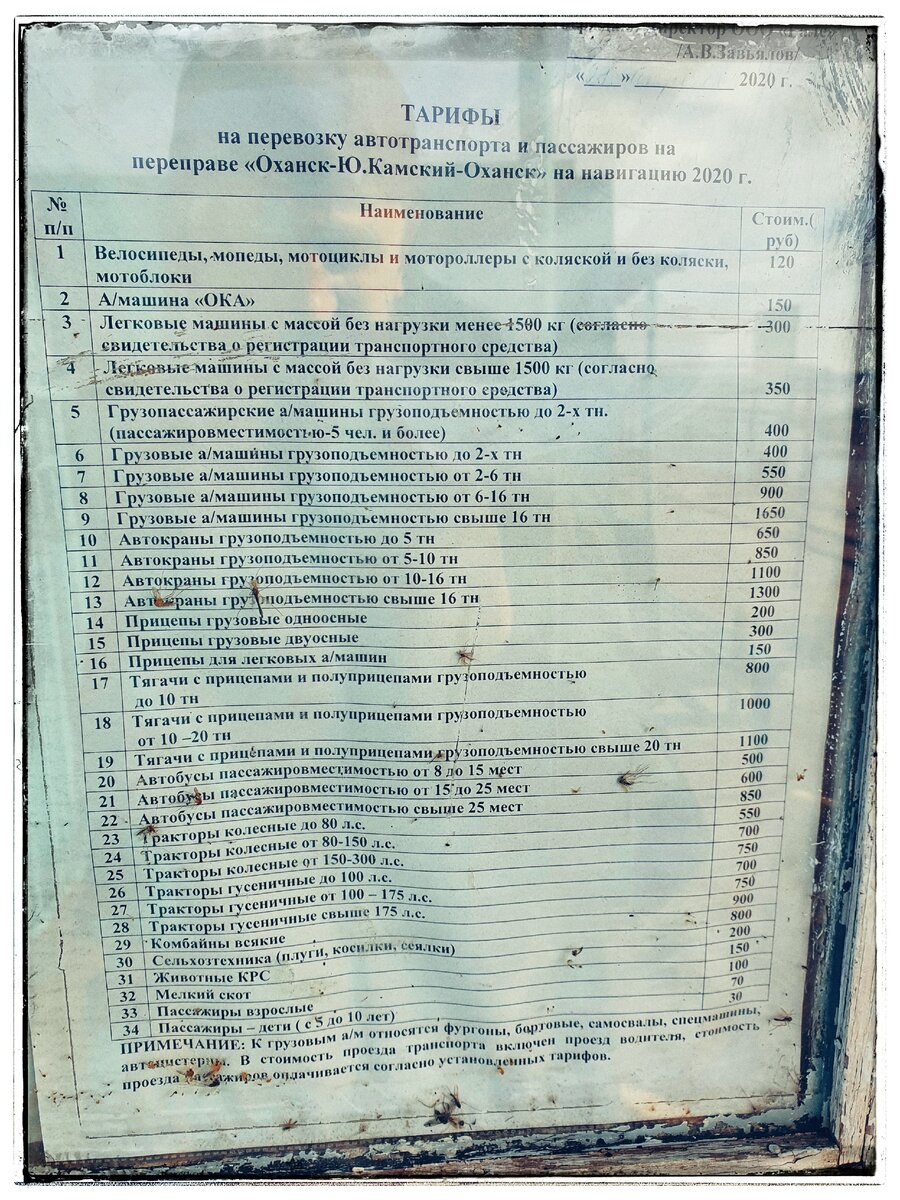 /А.В.Завьялов/
«___»__________ 2020 г.
ТАРИФЫ
на перевозку автотранспорта и пассажиров на
переправе «Оханск-Ю.Камский-Оханск» на навигацию 2020 г.
№ п/п Наименование Стоим.( руб)
1 Велосипеды, мопеды, мотоциклы и мотороллеры с коляской и без коляски, 120
мотоблоки
2 А/машина «ОКА» 150
3 Легковые машины с массой без нагрузки менее 1500 кг (согласно 300
свидетельства о регистрации транспортного средства)
4 Легковые машины с массой без нагрузки свыше 1500 кг (согласно
свидетельства о регистрации транспортного средства) 350
5 Грузопассажирские а/машины грузоподъемностью до 2-х тн.
(пассажировместимостью-5 чел. и более) 400
6 Грузовые а/машины грузоподъемностью до 2-х тн 400
7 Грузовые а/машины грузоподъемностью от 2-6 тн 550
8 Грузовые а/машины грузоподъемностью от 6-16 тн 900
9 Грузовые а/машины грузоподъемностью свыше 16 тн 1650
10 Автокраны грузоподъемностью до 5 тн 650
11 Автокраны грузоподъемностью от 5-10 тн 850
12 Автокраны грузоподъемностью от 10-16 тн 1100
13 Автокраны грузоподъемностью свыше 16 тн 1300
14 Прицепы грузовые одноосные 200
15 Прицепы грузовые двуосные 300
16 Прицепы для легковых а/машин 150
17 Тягачи с прицепами и полуприцепами грузоподъемностью 800
до 10 тн
18 Тягачи с прицепами и полуприцепами грузоподъемностью 1000
от 10 –20 тн
19 Тягачи с прицепами и полуприцепами грузоподъемностью свыше 20 тн 1100
20 Автобусы пассажировместимостью от 8 до 15 мест 500
21 Автобусы пассажировместимостью от 15 до 25 мест 600
22 Автобусы пассажировместимостью свыше 25 мест 850
23 Тракторы колесные до 80 л.с. 550
24 Тракторы колесные от 80-150 л.с. 700
25 Тракторы колесные от 150-300 л.с. 750
26 Тракторы гусеничные до 100 л.с. 700
27 Тракторы гусеничные от 100 – 175 л.с. 750
28 Тракторы гусеничные свыше 175 л.с. 900
29 Комбайны всякие 800
30 Сельхозтехника (плуги, косилки, сеялки) 200
31 Животные КРС 150
32 Мелкий скот 100
33 Пассажиры взрослые 70
34 Пассажиры – дети ( с 5 до 10 лет) 30
ПРИМЕЧАНИЕ: К грузовым а/м относятся фургоны, бортовые, самосвалы, спецмашины,
автоцистерны. В стоимость проезда транспорта включен проезд водителя, стоимость
проезда пассажиров оплачивается согласно установленных тарифов.